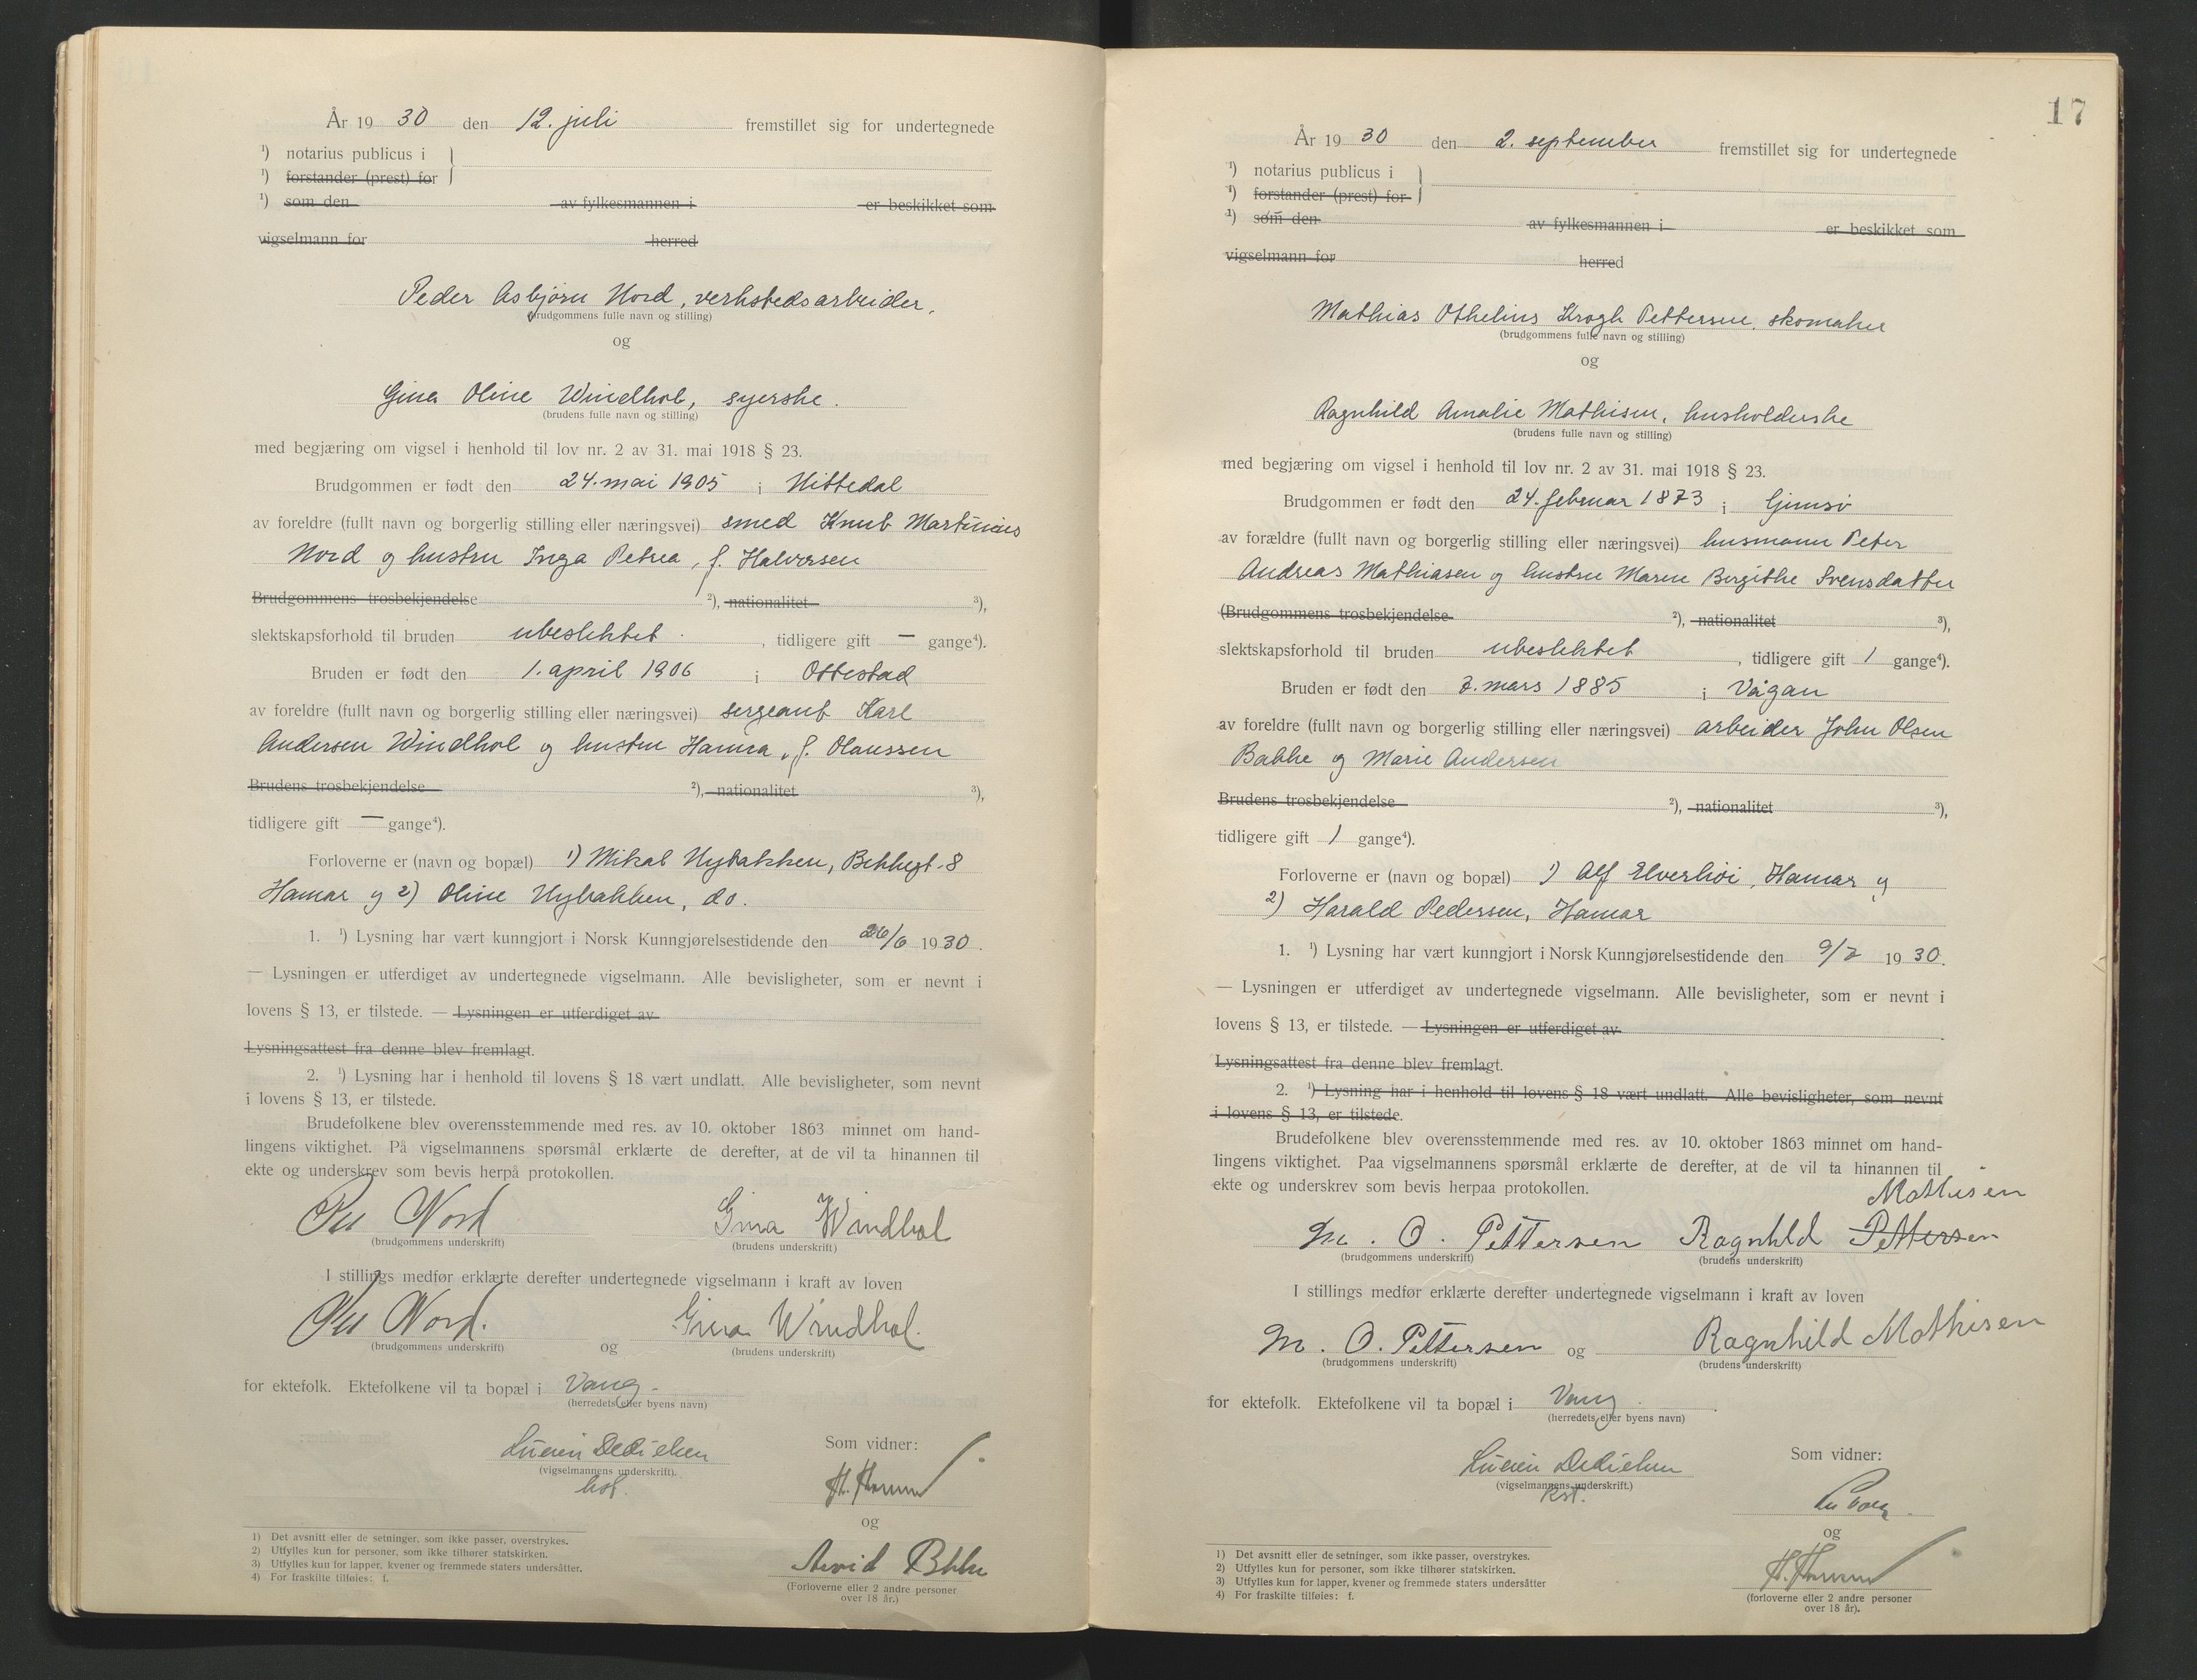 År 1930 den 12. juli fremstillet sig for undertegnede
¹) notarius publicus i
¹) forstander (prest) for
¹) som den av fylkesmannen i er beskikket som
vigselmann for herred
Peder Asbjørn Nord, verkstedsarbeider.
(brudgommens fulle navn og stilling)
og
Gina Oline Windhol, syerske.
(brudens fulle navn og stilling)
med begjæring om vigsel i henhold til lov nr. 2 av 31. mai 1918 § 23.
Brudgommen er født den 24. mai 1905 i Nittedal
av foreldre (fullt navn og borgerlig stilling eller næringsvei) smed Knut Martinius
Nord og hustru Inga Petrea, f. Halvorsen
Brudgommens trosbekjendelse ²), nationalitet ³),
slektskapsforhold til bruden ubeslektet . , tidligere gift — gange⁴).
Bruden er født den 1. april 1906 i Ottestad
av foreldre (fullt navn og borgerlig stilling eller næringsvei) sergeant Karl
Andersen Windhol og hustru Hanna, f. Olaussen
Brudens trosbekjendelse ²), nationalitet ³),
tidligere gift — gange⁴).
Forloverne er (navn og bopæl) ¹) Mikal Nybakken, Bekkegt. 8
Hamar og 2) Oline Nybakken, do.
1. ¹) Lysning har vært kunngjort i Norsk Kunngjørelsestidende den 26/6 1930.
— Lysningen er utferdiget av undertegnede vigselmann. Alle bevisligheter, som er nevnt i
lovens § 13, er tilstede. — Lysningen er utferdiget av
Lysningsattest fra denne blev fremlagt.
2. ¹) Lysning har i henhold til lovens § 18 vært undlatt. Alle bevisligheter, som nevnt
i lovens § 13, er tilstede.
Brudefolkene blev overensstemmende med res. av 10. oktober 1863 minnet om hand-
lingens viktighet. På vigselmannens spørsmål erklærte de derefter, at de vil ta hinannen til
ekte og underskrev som bevis herpå protokollen.
Per Nord Gina Windhol
(brudgommens underskrift) (brudens underskrift)
I stillings medfør erklærte derefter undertegnede vigselmann i kraft av loven
Per Nord. og Gina Windhol.
(brudgommens underskrift) (brudens underskrift)
for ektefolk. Ektefolkene vil ta bopæl i Vang.
(herredets eller byens navn)
Som vidner:
Lucien Dedichen
(vigselmannens underskrift).
kst.
og
Arvid
(Forloverne eller 2 andre personer
over 18 år.)
1) Det avsnitt eller de setninger, som ikke passer, overstrykes.
2) Utfylles kun for personer, som ikke tilhører statskirken.
3) Utfylles kun for lapper, kvener og fremmede staters undersåtter.
4) For fraskilte tilføies: f.
17
År 1930 den 2. september fremstillet sig for undertegnede
¹) notarius publicus i
¹) forstander (prest) for
¹) som den av fylkesmannen i er beskikket som
vigselmann for herred
Mathias Othelius Krogh Pettersen, skomaker
(brudgommens fulle navn og stilling)
og
Ragnhild Amalie Mathisen, husholderske
(brudens fulle navn og stilling)
med begjæring om vigsel i henhold til lov nr. 2 av 31. mai 1918 § 23.
Brudgommen er født den 24. februar 1873 i Gimsø
av forældre (fullt navn og borgerlig stilling eller næringsvei) husmann Peter
Andreas Mathiasen og hustru Maren Bergithe Svensdatter
(Brudgommens trosbekjendelse ²), nationalitet ³),
slektskapsforhold til bruden ubeslektet , tidligere gift 1 gange⁴).
Bruden er født den 7. mars 1885 i Vågan
av foreldre (fullt navn og borgerlig stilling eller næringsvei) arbeider John Olsen
Bakke og Marie Andersen
Brudens trosbekjendelse ²), nationalitet ³),
tidligere gift 1 gange⁴).
Forloverne er (navn og bopæl) 1) Alf Elverhøi, Hamar og
2) Harald Pedersen, Hamar
1. ¹) Lysning har vært kunngjort i Norsk Kunngjørelsestidende den 9/7 1930.
— Lysningen er utferdiget av undertegnede vigselmann. Alle bevisligheter, som er nevnt i
lovens § 13, er tilstede. — Lysningen er utferdiget av
Lysningsattest fra denne blev fremlagt.
2. ¹) Lysning har i henhold til lovens § 18 vært undlatt. Alle bevisligheter, som nevnt
i lovens § 13, er tilstede.
Brudefolkene blev overensstemmende med res. av 10. oktober 1863 minnet om hand-
lingens viktighet. Paa vigselmannens spørsmål erklærte de derefter, at de vil ta hinannen til
ekte og underskrev som bevis herpaa protokollen.
Mathisen
M. O. Pettersen Ragnhild Pettersen
(brudgommens underskrift) (brudens underskrift)
I stillings medfør erklærte derefter undertegnede vigselmann i kraft av loven
M. O. Pettersen og Ragnhild Mathisen
(brudgommens underskrift) (brudens underskrift)
for ektefolk. Ektefolkene vil ta bopæl i Vang.
(herredets eller byens navn)
Som vidner:
Lucien Dedichen
(vigselmannens underskrift.)
kst.
og
(forloverne eller 2 andre personer
over 18 år).
1) Det avsnitt eller de setninger, som ikke passer, overstrykes.
2) Utfylles kun for personer, som ikke tilhører statskirken.
3) Utfylles kun for lapper, kvener og fremmede staters undersåtter
4) For fraskilte tilføies: f.